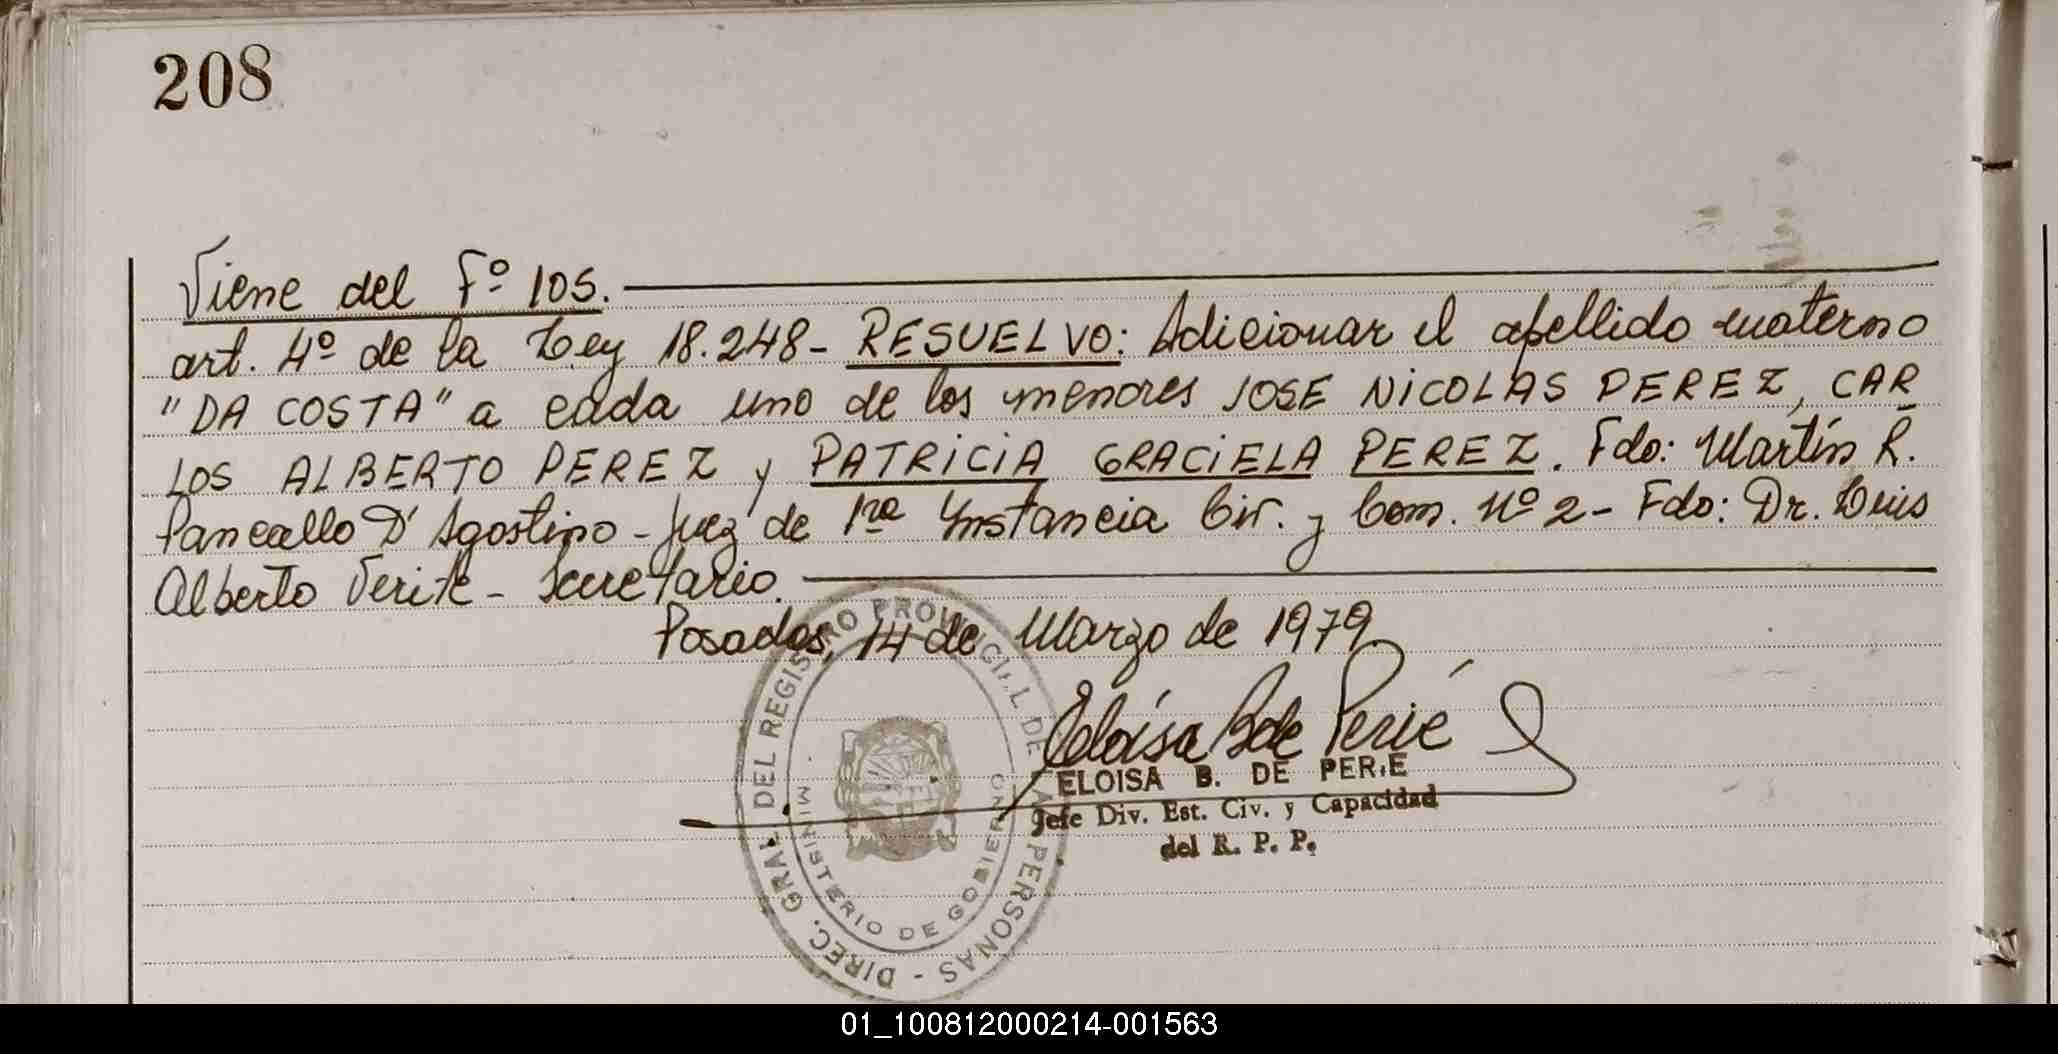 208
Viene del Fº 105.
art. 4º de la Ley 18.248- RESUELVO: Adicionar el apellido materno
"DA COSTA" a cada uno de los menores JOSE NICOLAS PEREZ, CAR
LOS ALBERTO PEREZ y PATRICIA GRACIELA PEREZ. Fdo: Martín R.
Pancallo D'Agostino - Juez de 1ra Instancia Civ. y Com. Nº 2- Fdo: Dr. Luis
Alberto Verite - Secretario.
Posadas, 14 de Marzo de 1979
Eloísa B de Perié
ELOISA B. DE PERIE
Jefe Div. Est. Civ. y Capacidad
del R. P. P.
DIREC. GRAL. DEL REGISTRO PROVINCIAL DE LA PERSONAS -
MINISTERIO DE GOBIERNO
01_100812000214-001563